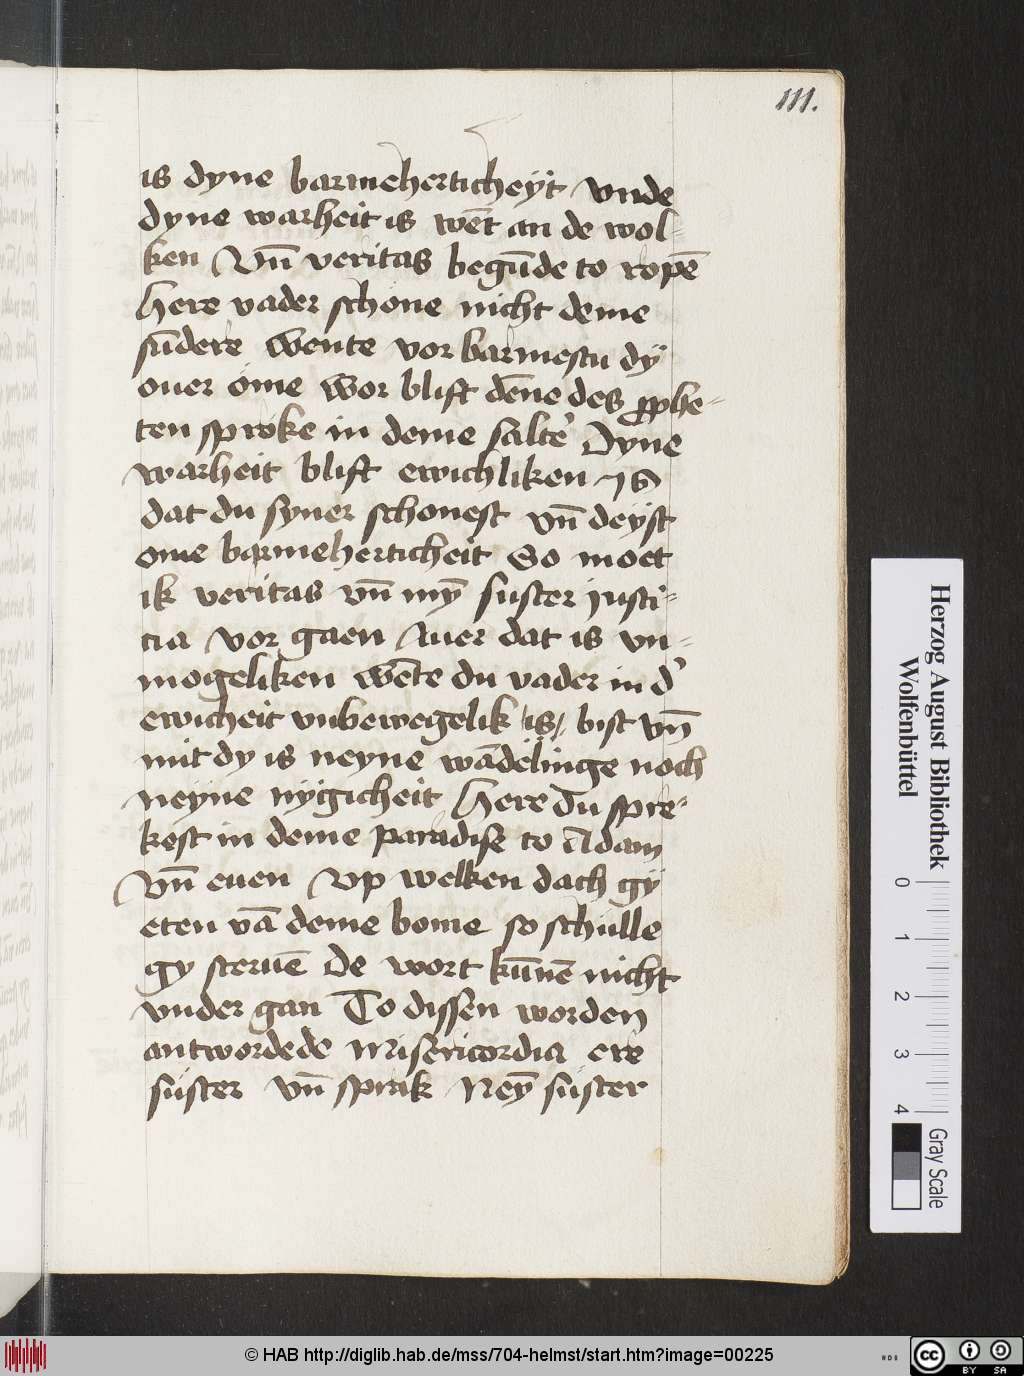 111.
is dyne barmeherticheÿt vnde
dyne warheit is wēt an de wol-
ken Vn̄ veritas begūde to ropē
Here vader schone nicht deme
sūdere Wente vor barmestu dÿ
ouer óme Wor blift dēne des ꝓphe-
ten spróke in deme salte᷒ Dyne
warheit blift ewichliken IS
dat du syner schonest vn̄ deÿst
ome barmeherticheit So moet
ik veritas vn̄ mȳ suster justi-
cia vor gaen Auer dat is vn-
mogeliken wēte du vader in d᷒
ewicheit vnbewegelik is bist vn̄
mit dy is neyne wādelinge noch
neyne nÿgicheit Here du spre-
kest in deme paradise to Adam
vn̄ euen Vp welken dach gÿ
eten vā deme bome so schulle
gy steruē De wort kūnē nicht
vnder gan To dissen worden
antwordede Misericordia ere
súster vn̄ sprak Neȳ súster
Herzog August Bibliothek
Wolfenbüttel
0 1 2 3 4
Gray Scale
© HAB http://diglib.hab.de/mss/704-helmst/start.htm?image=00225
cc BY SA